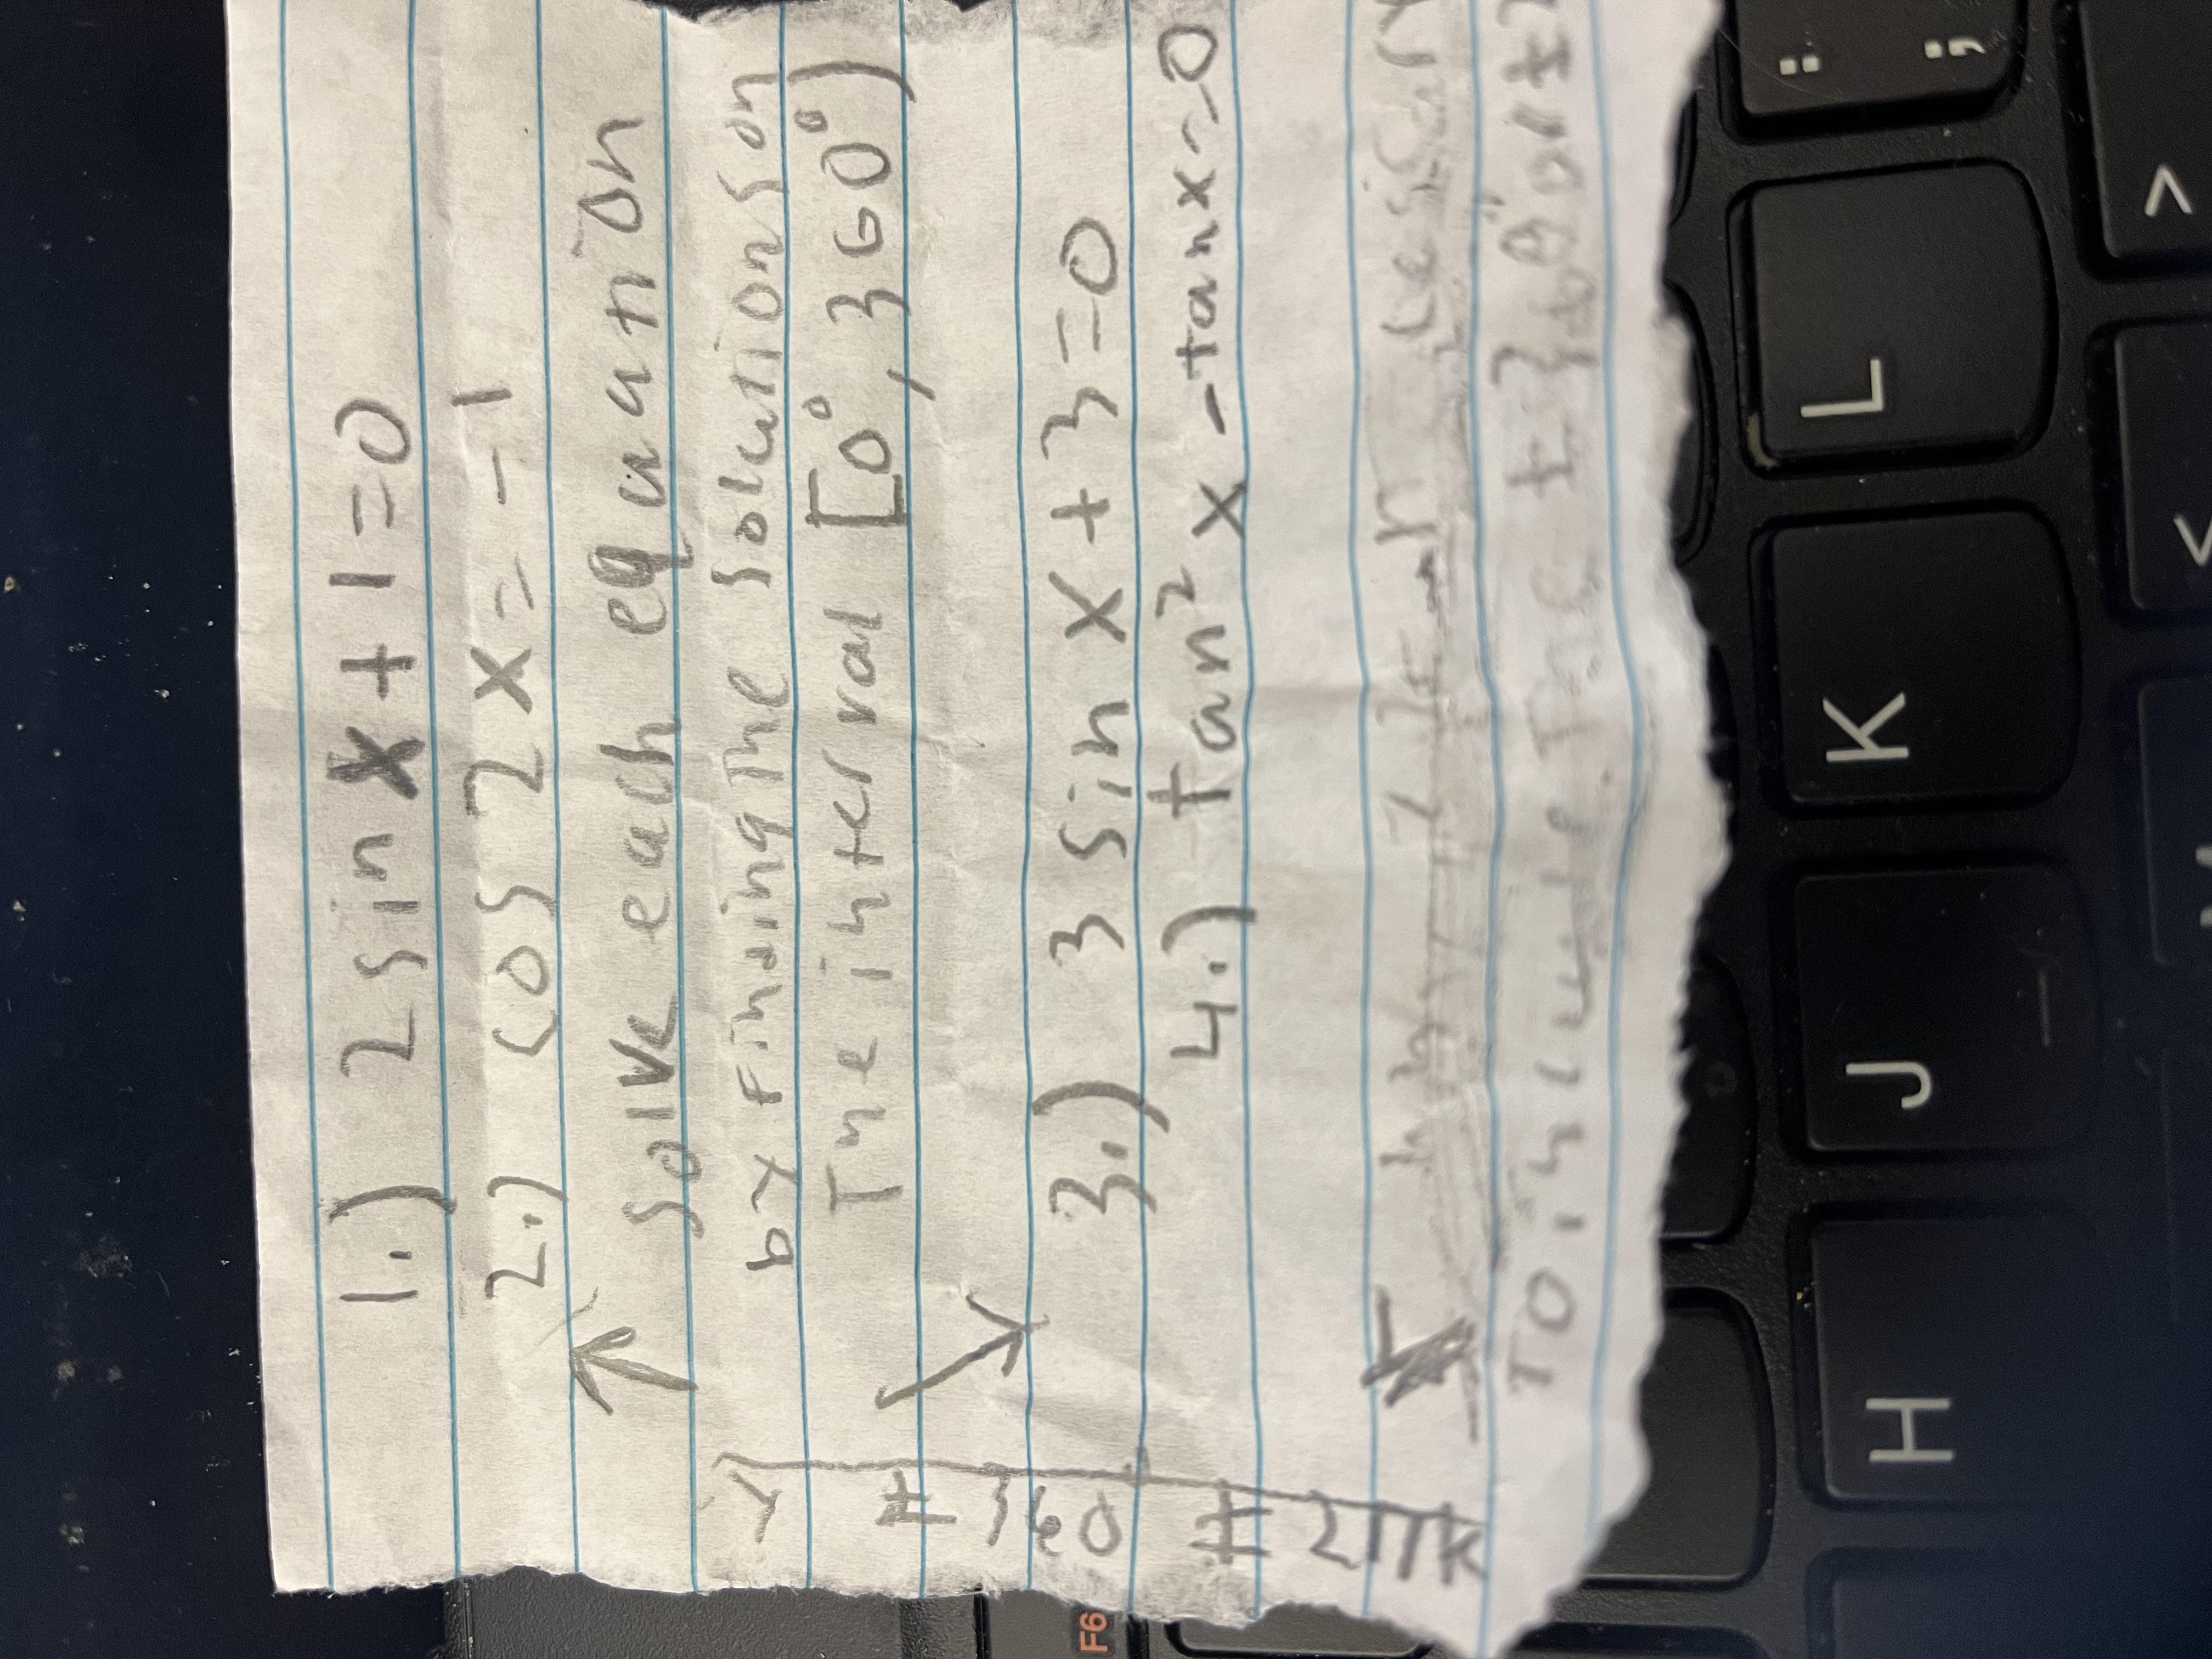 1.) 2 sin x + 1 = 0
2.) cos 2x = -1
solve each equation
by finding the solutions on
The interval [0°, 360°)
3.) 3 sin x + 3 = 0
4.) Tan² x - tan x = 0
To include The
± 360
± 2πk
F6
H
J
K
L
:
;
<
>